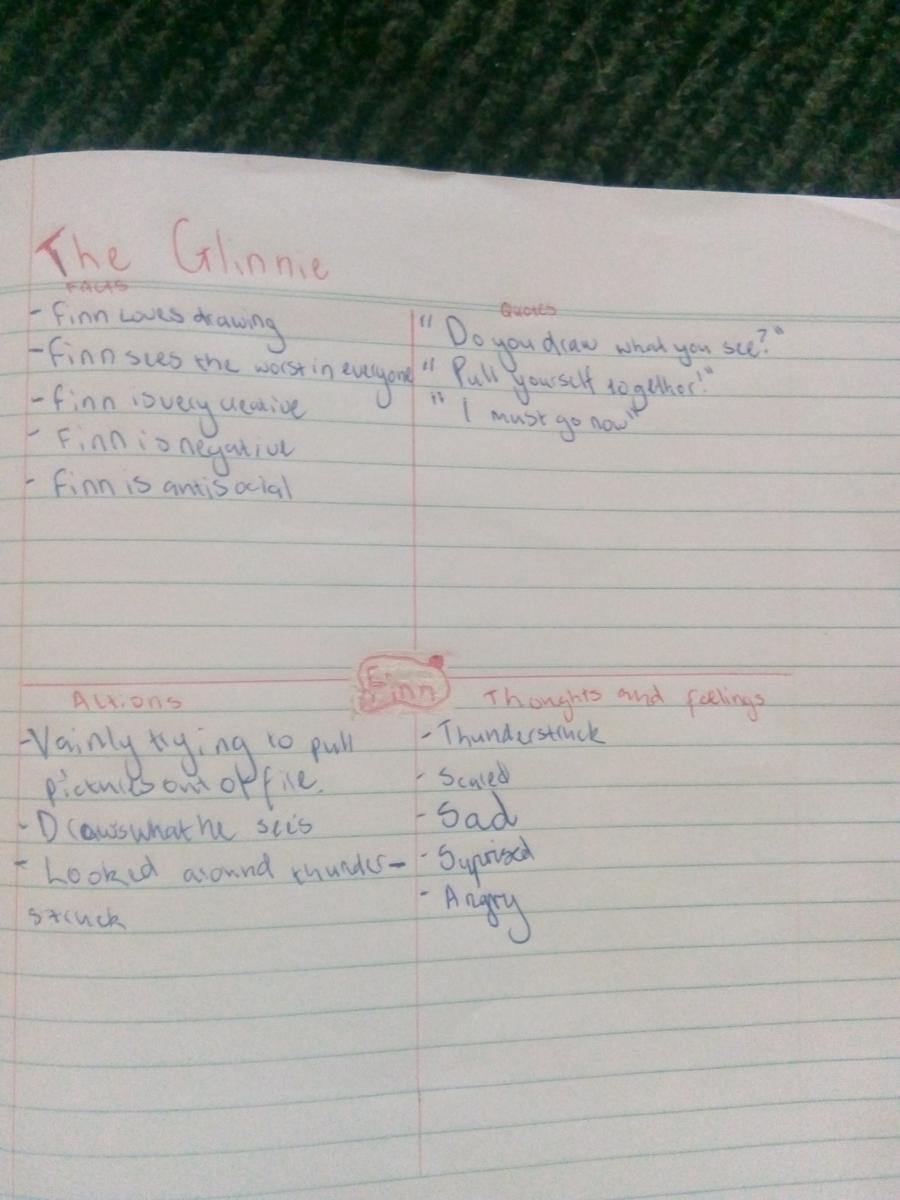 The Glinnie
FACTS
- Finn Loves drawing
- Finn sees the worst in everyone
- Finn is very creative
- Finn is negative
- Finn is antisocial
Quotes
" Do you draw what you see?"
" Pull yourself together!"
" I must go now"
Finn
Actions
- Vainly trying to pull
pictures out of file.
- Draws what he sees
- Looked around thunder-
struck
Thoughts and feelings
- Thunderstruck
- Scared
- Sad
- Suprised
- Angry